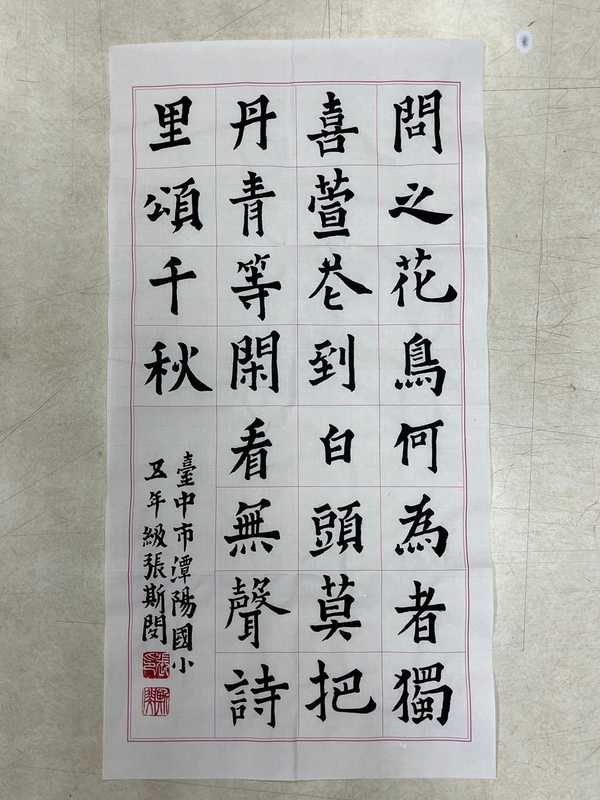 問之花鳥何為者獨
喜萱芲到白頭莫把
丹青等閑看無聲詩
里頌千秋
臺中市潭陽國小
五年級張斯閔